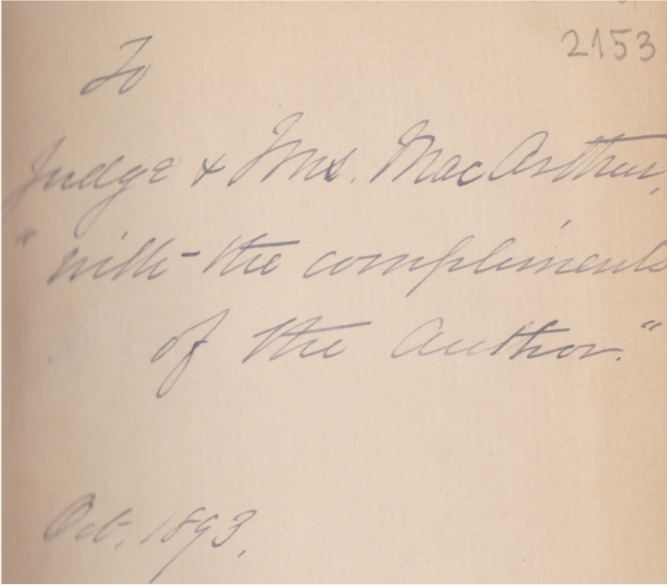 2153
To
Judge & Mrs. MacArthur,
"with the compliments
of the Author."
Oct. 1893.